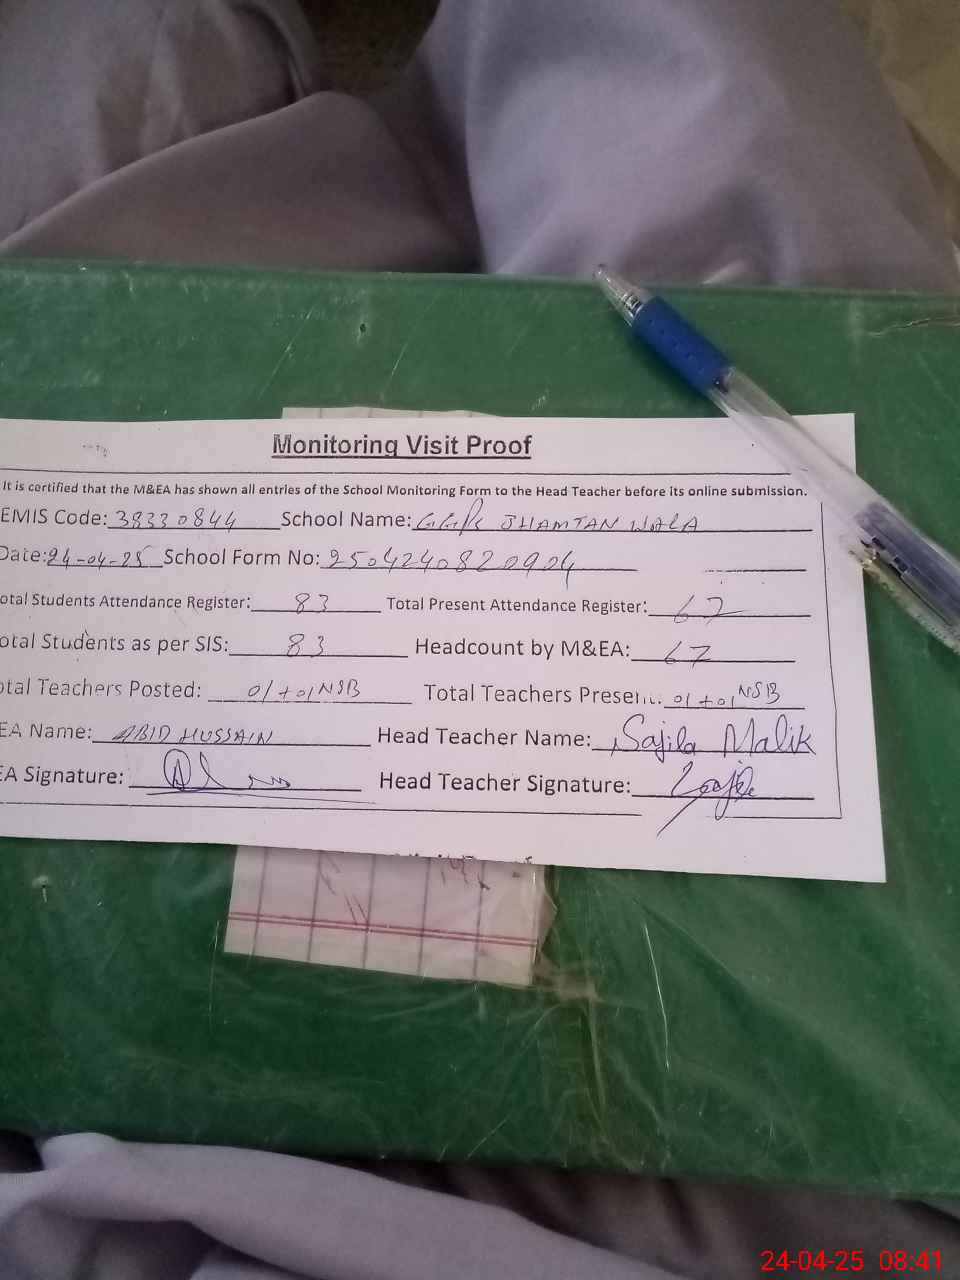 Monitoring Visit Proof
It is certified that the M&EA has shown all entries of the School Monitoring Form to the Head Teacher before its online submission.
EMIS Code: 38330844 School Name: GGPS JHAMTAN WALA
Date: 24-04-25 School Form No: 2504240820904
otal Students Attendance Register: 83 Total Present Attendance Register: 67
otal Students as per SIS: 83 Headcount by M&EA: 67
otal Teachers Posted: 01+01 NSB Total Teachers Present: 01+01 NSB
EA Name: ABID HUSSAIN Head Teacher Name: Sajila Malik
EA Signature: Head Teacher Signature:
24-04-25 08:41